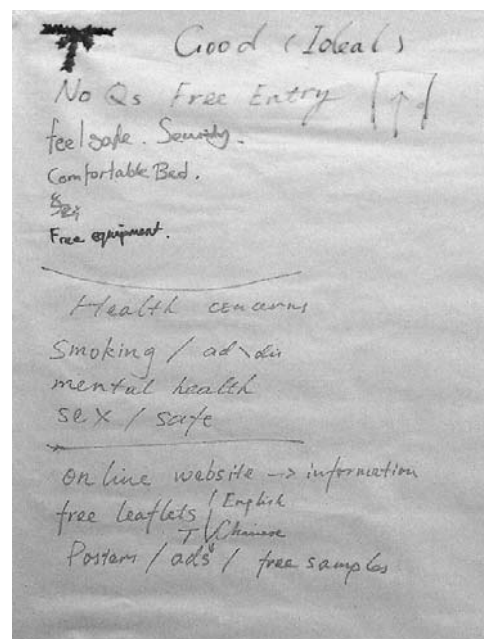 Good (Ideal)
No Qs Free Entry
feel safe. Security.
Comfortable Bed.
Free equipment.
Health concerns
Smoking /
mental health
sex / safe
online website → information
free leaflets / English
Chinese
Posters / ads / free samples